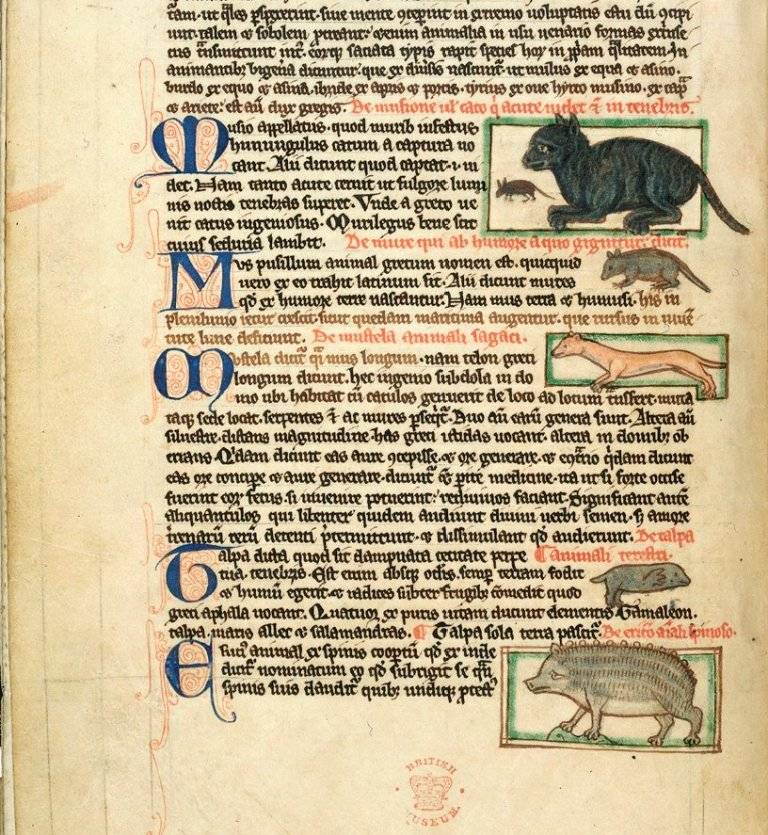 tam. ut q̃les ꝑspexerint. siue mente ꝯceperint in extremo uoluptatis estu dũ ꝯcipi
unt. talem ⁊ sobolem procreant. etenim animalia in usu uenerio formas extrinse
cus transmittunt int̃. eorumq; saciata typis rapit species hor̃ in ꝓpam q̃litatem. In
animantibꝫ bigenia dicuntur. que ex diuersis nascunt̃. ut mulus ex equa ⁊ asino.
burdo ex equo ⁊ asina. ibride ex apris ⁊ porcis. tyrius ex oue hyrco musino. ex cap̃
⁊ ariete: est aũ dux gregis. De musione ul' cato q̃ acute uidet ⁊ in tenebris.
Musio appellatus. quod murib infestus
hunc uulgus catum a captura uo
cant. Alii dicunt quod captat. i. ui
det. Nam tanto acute cernit ut fulgore lumi
nis noctis tenebras superet. Unde a greco ue
nit catus ingeniosus. Murilegus bene scit
cuius lambit. De mure qui ab humore a quo gignitur. dicit̃.
Mus pusillum animal grecum nomen est. quicquid
uero ex eo trahit latinum fit. Alii dicunt mures
qđ ex humore terre nascantur. Nam mus terra ⁊ humus. his in
plenilunio iecur crescit. sicut quedam maritima augentur. que rursus in minu
te lune deficiunt. De mustela animali sagaci.
Mustela dicit̃ q̃i mus longum. nam telon greci
longum dicunt. hec ingenio subdola in do
mo ubi habitat cũ catulos genuerit de loco ad locum transfert. muta
taq; sede locat. serpentes ⁊ ac mures ꝑseq̃t̃. Duo aũ earũ genera sunt. Altera aũ
siluestre. distans magnitudine. has greci ictidas uocant. altera in domibꝫ ob
errans. Q̃dam dicunt eas aure ꝯcepisse. ⁊ ore generare. ⁊ eꝯtrio q̃dam dicunt
eas ore concipe ⁊ aure generare. dicunt̃ ⁊ perite medicine. ita ut si forte occise
fuerint eor̃ fetus. si inuenire potuerint: rediuiuos faciant. Significant autẽ
aliquantulos qui libenter quidem audiunt diuini uerbi semen. s; amore
terrenarũ rerũ detenti p̃termittunt. ⁊ dissimulant qđ audierunt. De talpa
Talpa dicta quod sit dampnata cecitate perpe animali terestri.
tua. tenebris. Est enim absq; oculis. semp̃ terram fodit
⁊ humũ egerit. ⁊ radices subter frugibꝫ comedit quod
greci aphala uocant. Quatuor ex puris uitam ducunt elementis Gamaleon.
talpa. maris allec ⁊ salamandras. Talpa sola terra pascit̃. De ericio aĩali spinoso.
Ericius animal ex spinis coopertũ qđ ex inde
dicit̃ nominatum eo qđ subrigit se q̃n
spinis suis claudit̃ quibꝫ undiq; ꝓtect̃
BRITISH MUSEUM.